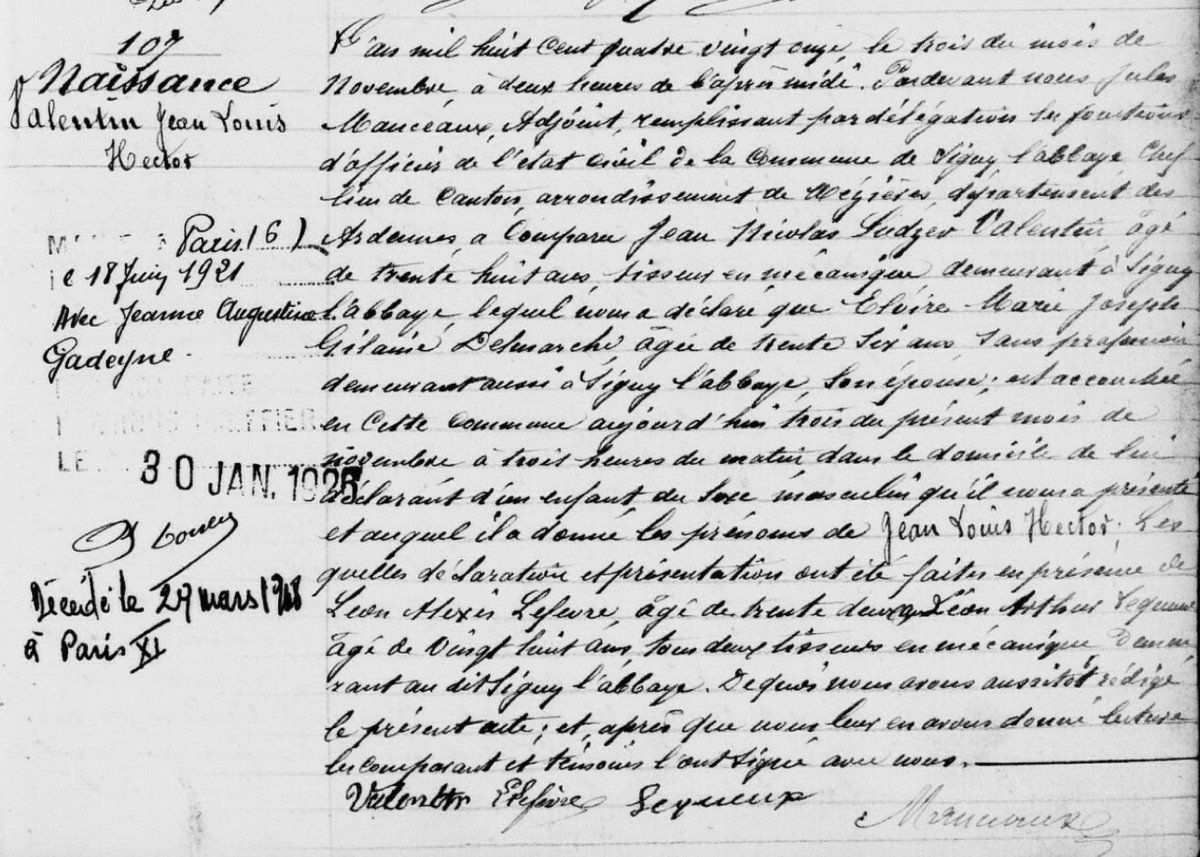 107
Naissance
Valentin Jean Louis
Hector
Paris (6)
le 18 Juin 1921
Avec Jeanne Augustine
Gadeyne.
LE 30 JAN. 1926
Décédé le 29 mars 1948
à Paris XI
L'an mil huit cent quatre vingt onze, le trois du mois de
Novembre, à deux heures de l'après midi. Pardevant nous Jules
Manceaux, Adjoint, remplissant par délégation les fonctions
d'officier de l'état civil de la Commune de Signy l'abbaye Chef
lieu de Canton, arrondissement de Mézières, département des
Ardennes, a Comparu Jean Nicolas Valentin âgé
de trente huit ans, tisseur en mécanique demeurant à Signy
l'abbaye, lequel nous a déclaré que Marie Joseph
Delmarche âgée de trente six ans, sans profession
demeurant aussi à Signy l'abbaye, son épouse; est accouchée
en cette Commune aujourd'hui trois du présent mois de
novembre à trois heures du matin dans le domicile de lui
déclarant d'un enfant du sexe masculin qu'il nous a présenté
et auquel il a donné les prénoms de Jean Louis Hector. Les
quelles déclaration et présentation ont été faites en présence de
Léon Alexis Lefevre, âgé de trente deux Léon Arthur Lequeux
âgé de vingt huit ans, tous deux tisseurs en mécanique, demeu
rant au dit Signy l'abbaye. De quoi nous avons aussitôt rédigé
le présent acte; et, après que nous leur en avons donné lecture
les comparant et témoins l'ont signé avec nous.
Valentin Lefevre Lequeux
Manceaux